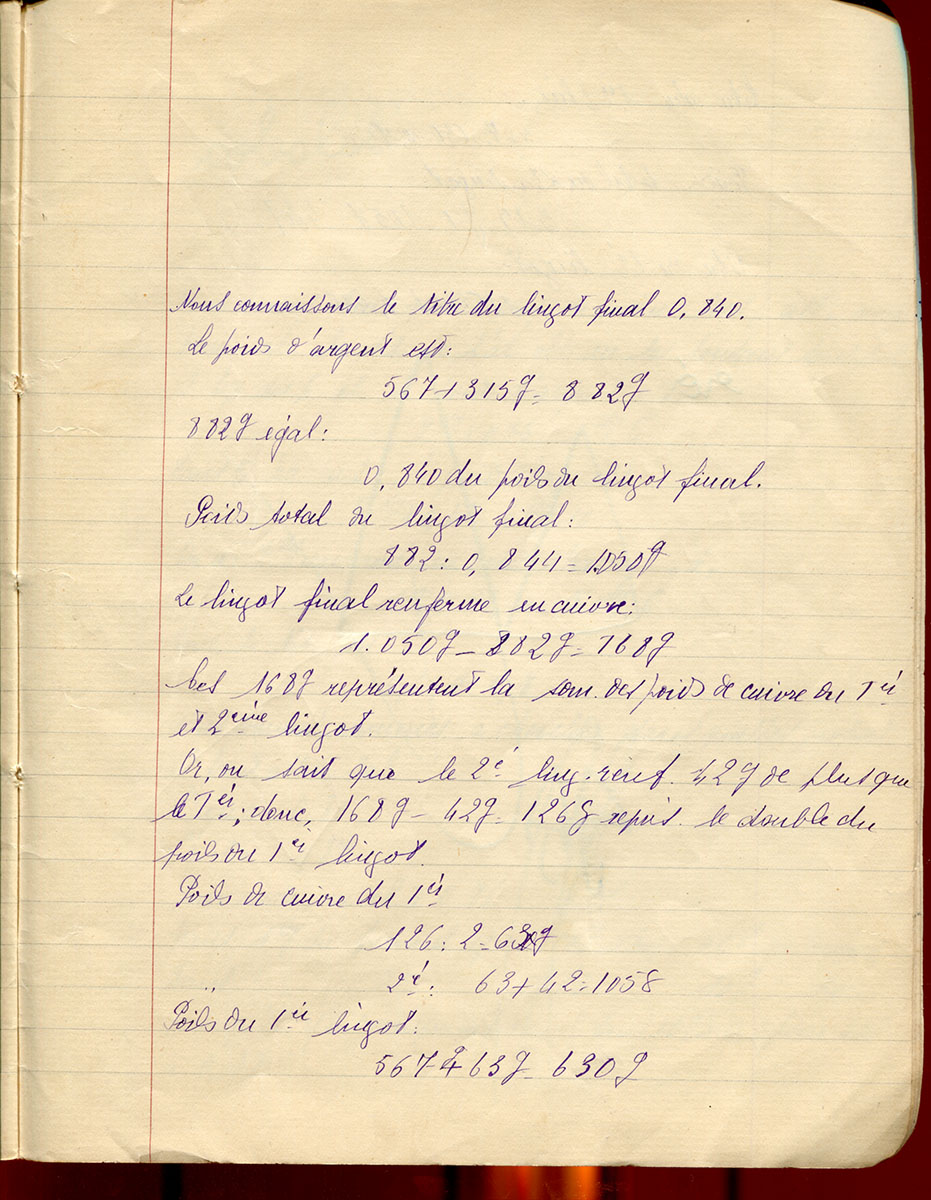 Nous connaissons le titre du lingot final 0,840.
Le poids d'argent est:
567+315g= 882g
882g égal:
0,840 du poids du lingot final.
Poids total du lingot final:
882: 0, 844= 1050g
Le lingot final renferme en cuivre:
1.050g - 882g= 168g
Ces 168g représentent la som. des poids de cuivre du 1er
et 2ème lingot.
Or, on sait que le 2e ling. renf. 42g de plus que
le 1er; donc, 168g - 42g= 126g repr. le double du
poids du 1er lingot.
Poids de cuivre du 1er
126: 2=63g
" 2e: 63+42=105g
Poids du 1er lingot:
567g+63g= 630g